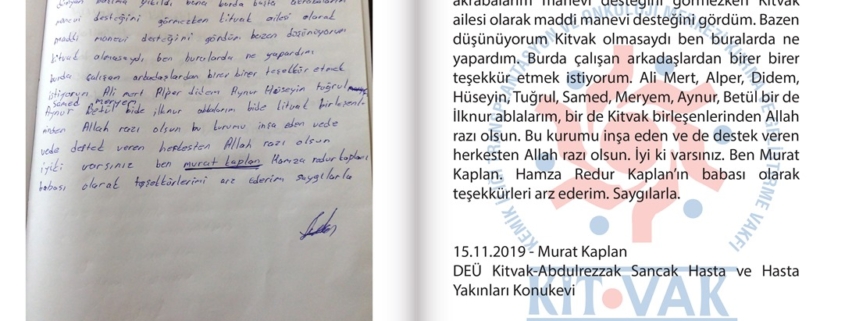 manevi desteğini görmezken kitvak ailesi olarak
maddi manevi desteğini gördüm bazen düşünüyorum
kitvak olmasaydı ben buralarda ne yapardım
burda çalışan arkadaşlardan birer birer teşekkür etmek
istiyorum Ali mert Alper didem Aynur Hüseyin tuğrul
samed meryem
Aynur Betül bide ilknur ablalarım bide kitvak birleşenl-
erinden Allah razı olsun bu kurumu inşa eden vede
vede destek veren herkesten Allah razı olsun
iyiki varsınız ben murat kaplan Hamza redur kaplanı
babası olarak teşekkürlerimi arz ederim saygılarla
akrabalarım manevi desteğini görmezken Kitvak
ailesi olarak maddi manevi desteğini gördüm. Bazen
düşünüyorum Kitvak olmasaydı ben buralarda ne
yapardım. Burda çalışan arkadaşlardan birer birer
teşekkür etmek istiyorum. Ali Mert, Alper, Didem,
Hüseyin, Tuğrul, Samed, Meryem, Aynur, Betül bir de
İlknur ablalarım, bir de Kitvak birleşenlerinden Allah
razı olsun. Bu kurumu inşa eden ve de destek veren
herkesten Allah razı olsun. İyi ki varsınız. Ben Murat
Kaplan. Hamza Redur Kaplan'ın babası olarak
teşekkürleri arz ederim. Saygılarla.
15.11.2019 - Murat Kaplan
DEÜ Kitvak-Abdulrezzak Sancak Hasta ve Hasta
Yakınları Konukevi
KİT VAK